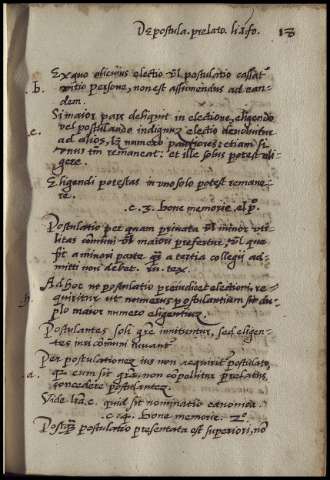 De postula. prelato. li. i. fo. 18
Ex quo alicuius electio vl postulatio cassat
vitio persone, non est assumendus ad ean-
b.
dem.
Si maior pars deliquit in electione, eligendo
vel postulando indignum electio devolvitur
e.
ad alios, lz numero pauciores: etiam si
unus tm remaneat: et ille solus potest eli-
gere.
Eligendi potestas in uno solo potest remane-
re.
c. 3. bone memorie. el p.
Postulatio per quam privata vl minor uti-
litas comuni vl maiori prefertur, vl que
fit a minori parte q a tertia collegii ad-
mitti non debet. in tex.
Ad hoc ut postulatio preiudicet electioni, re-
quiritur ut numerus postulantium sit du-
plo maior numero eligentium.
Postulantes soli gre innituntur, sed eligen-
tes iuri comuni iuvant
Per postulationem ius non acquirit postulato,
a.
que cum sit gre, non compellitur prelatus
concedere postulantes.
Vide lra. c. quid sit nominatio canonica.
c. 4. bone memorie. 2o.
Postq postulatio presentata est superiori, no